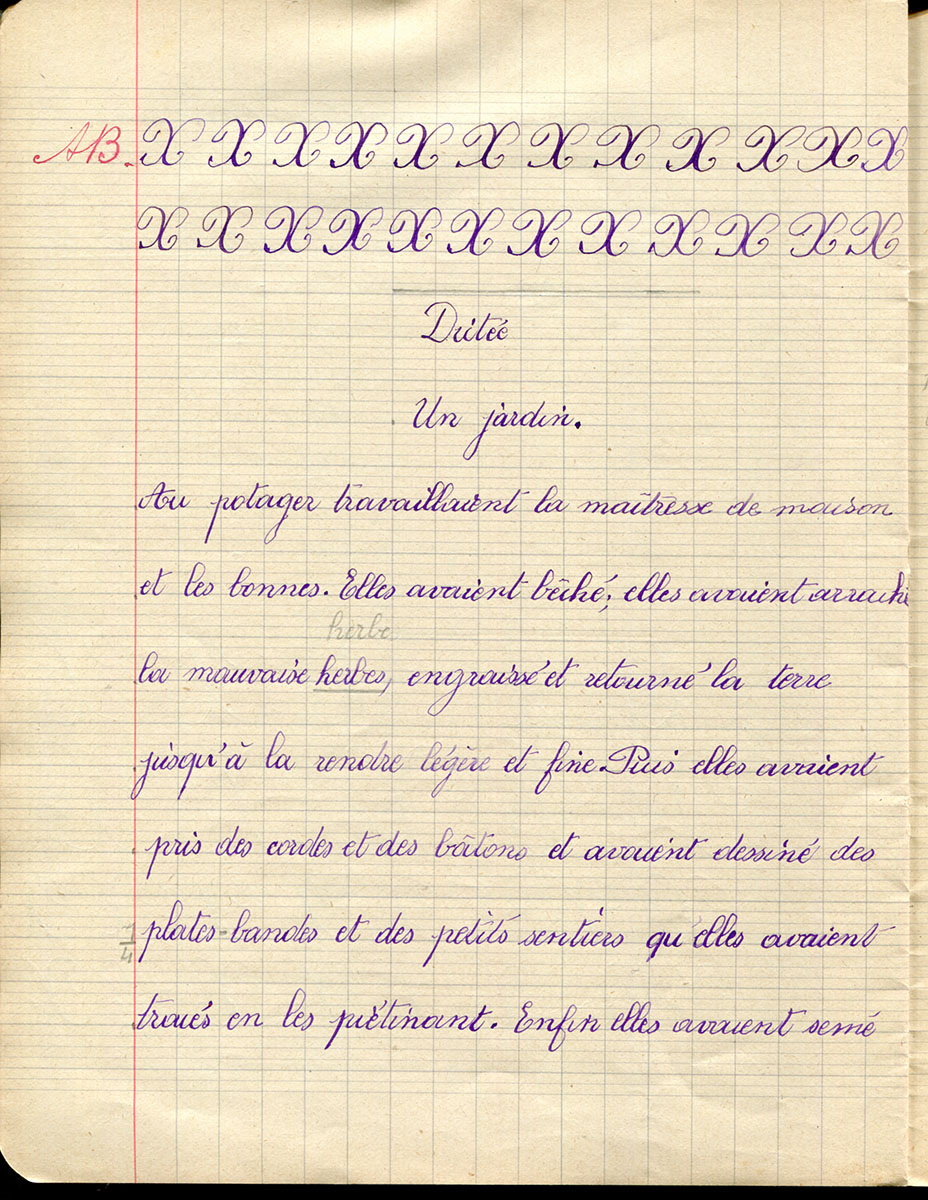 AB. X X X X X X X X X X X X
X X X X X X X X X X X X
Dictée
Un jardin.
Au potager travaillaient la maîtresse de maison
et les bonnes. Elles avaient bêché, elles avaient arraché
herbe
la mauvaise herbes, engraissé et retourné la terre
jusqu'à la rendre légère et fine. Puis elles avaient
pris des cordes et des bâtons et avaient dessiné des
1/4 plates-bandes et des petits sentiers qu'elles avaient
troués en les piétinant. Enfin elles avaient semé